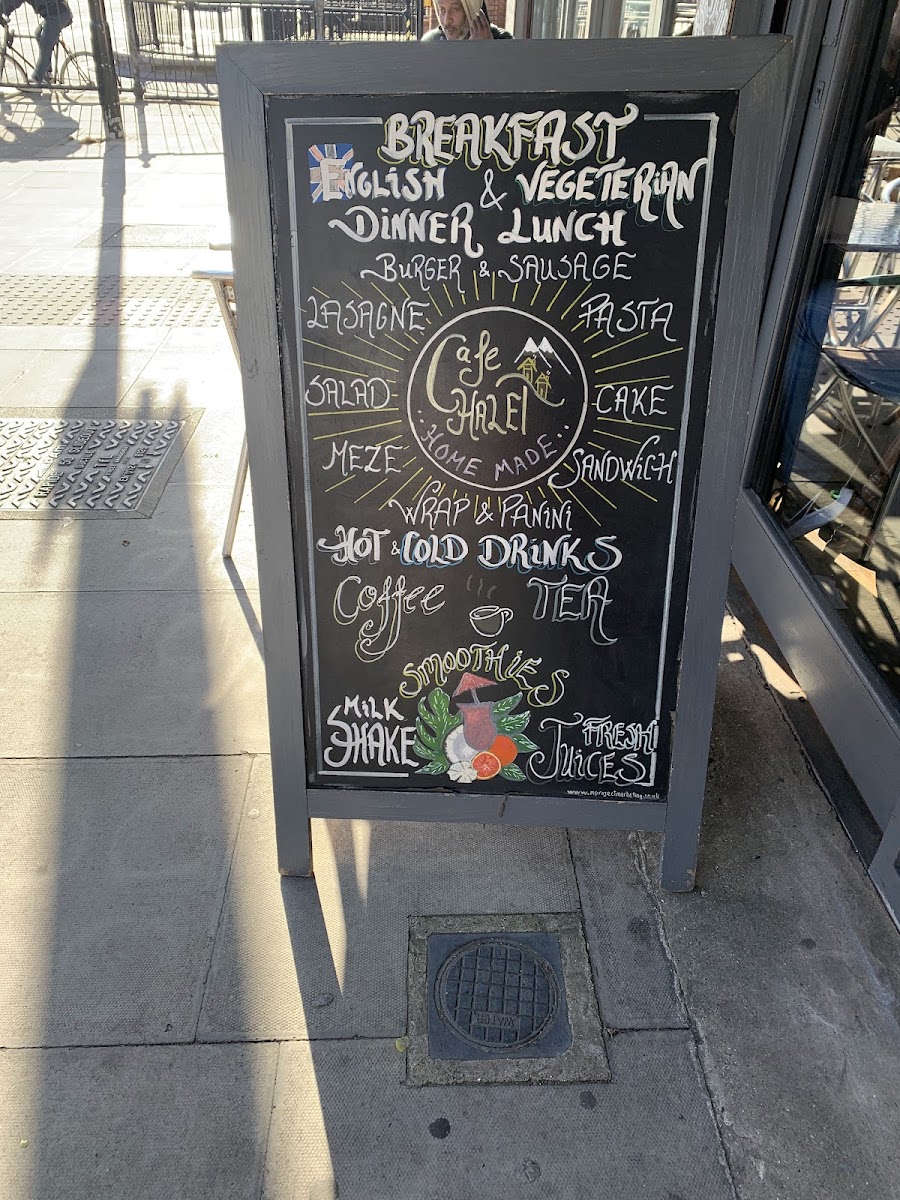 BREAKFAST
ENGLISH & VEGETERIAN
DINNER LUNCH
BURGER & SAUSAGE
LASAGNE PASTA
Cafe
HAZEL
SALAD CAKE
HOME MADE
MEZE SANDWICH
WRAP & PANINI
HOT & COLD DRINKS
Coffee TEA
SMOOTHIES
MILK SHAKE
FRESH JUICES
WATER